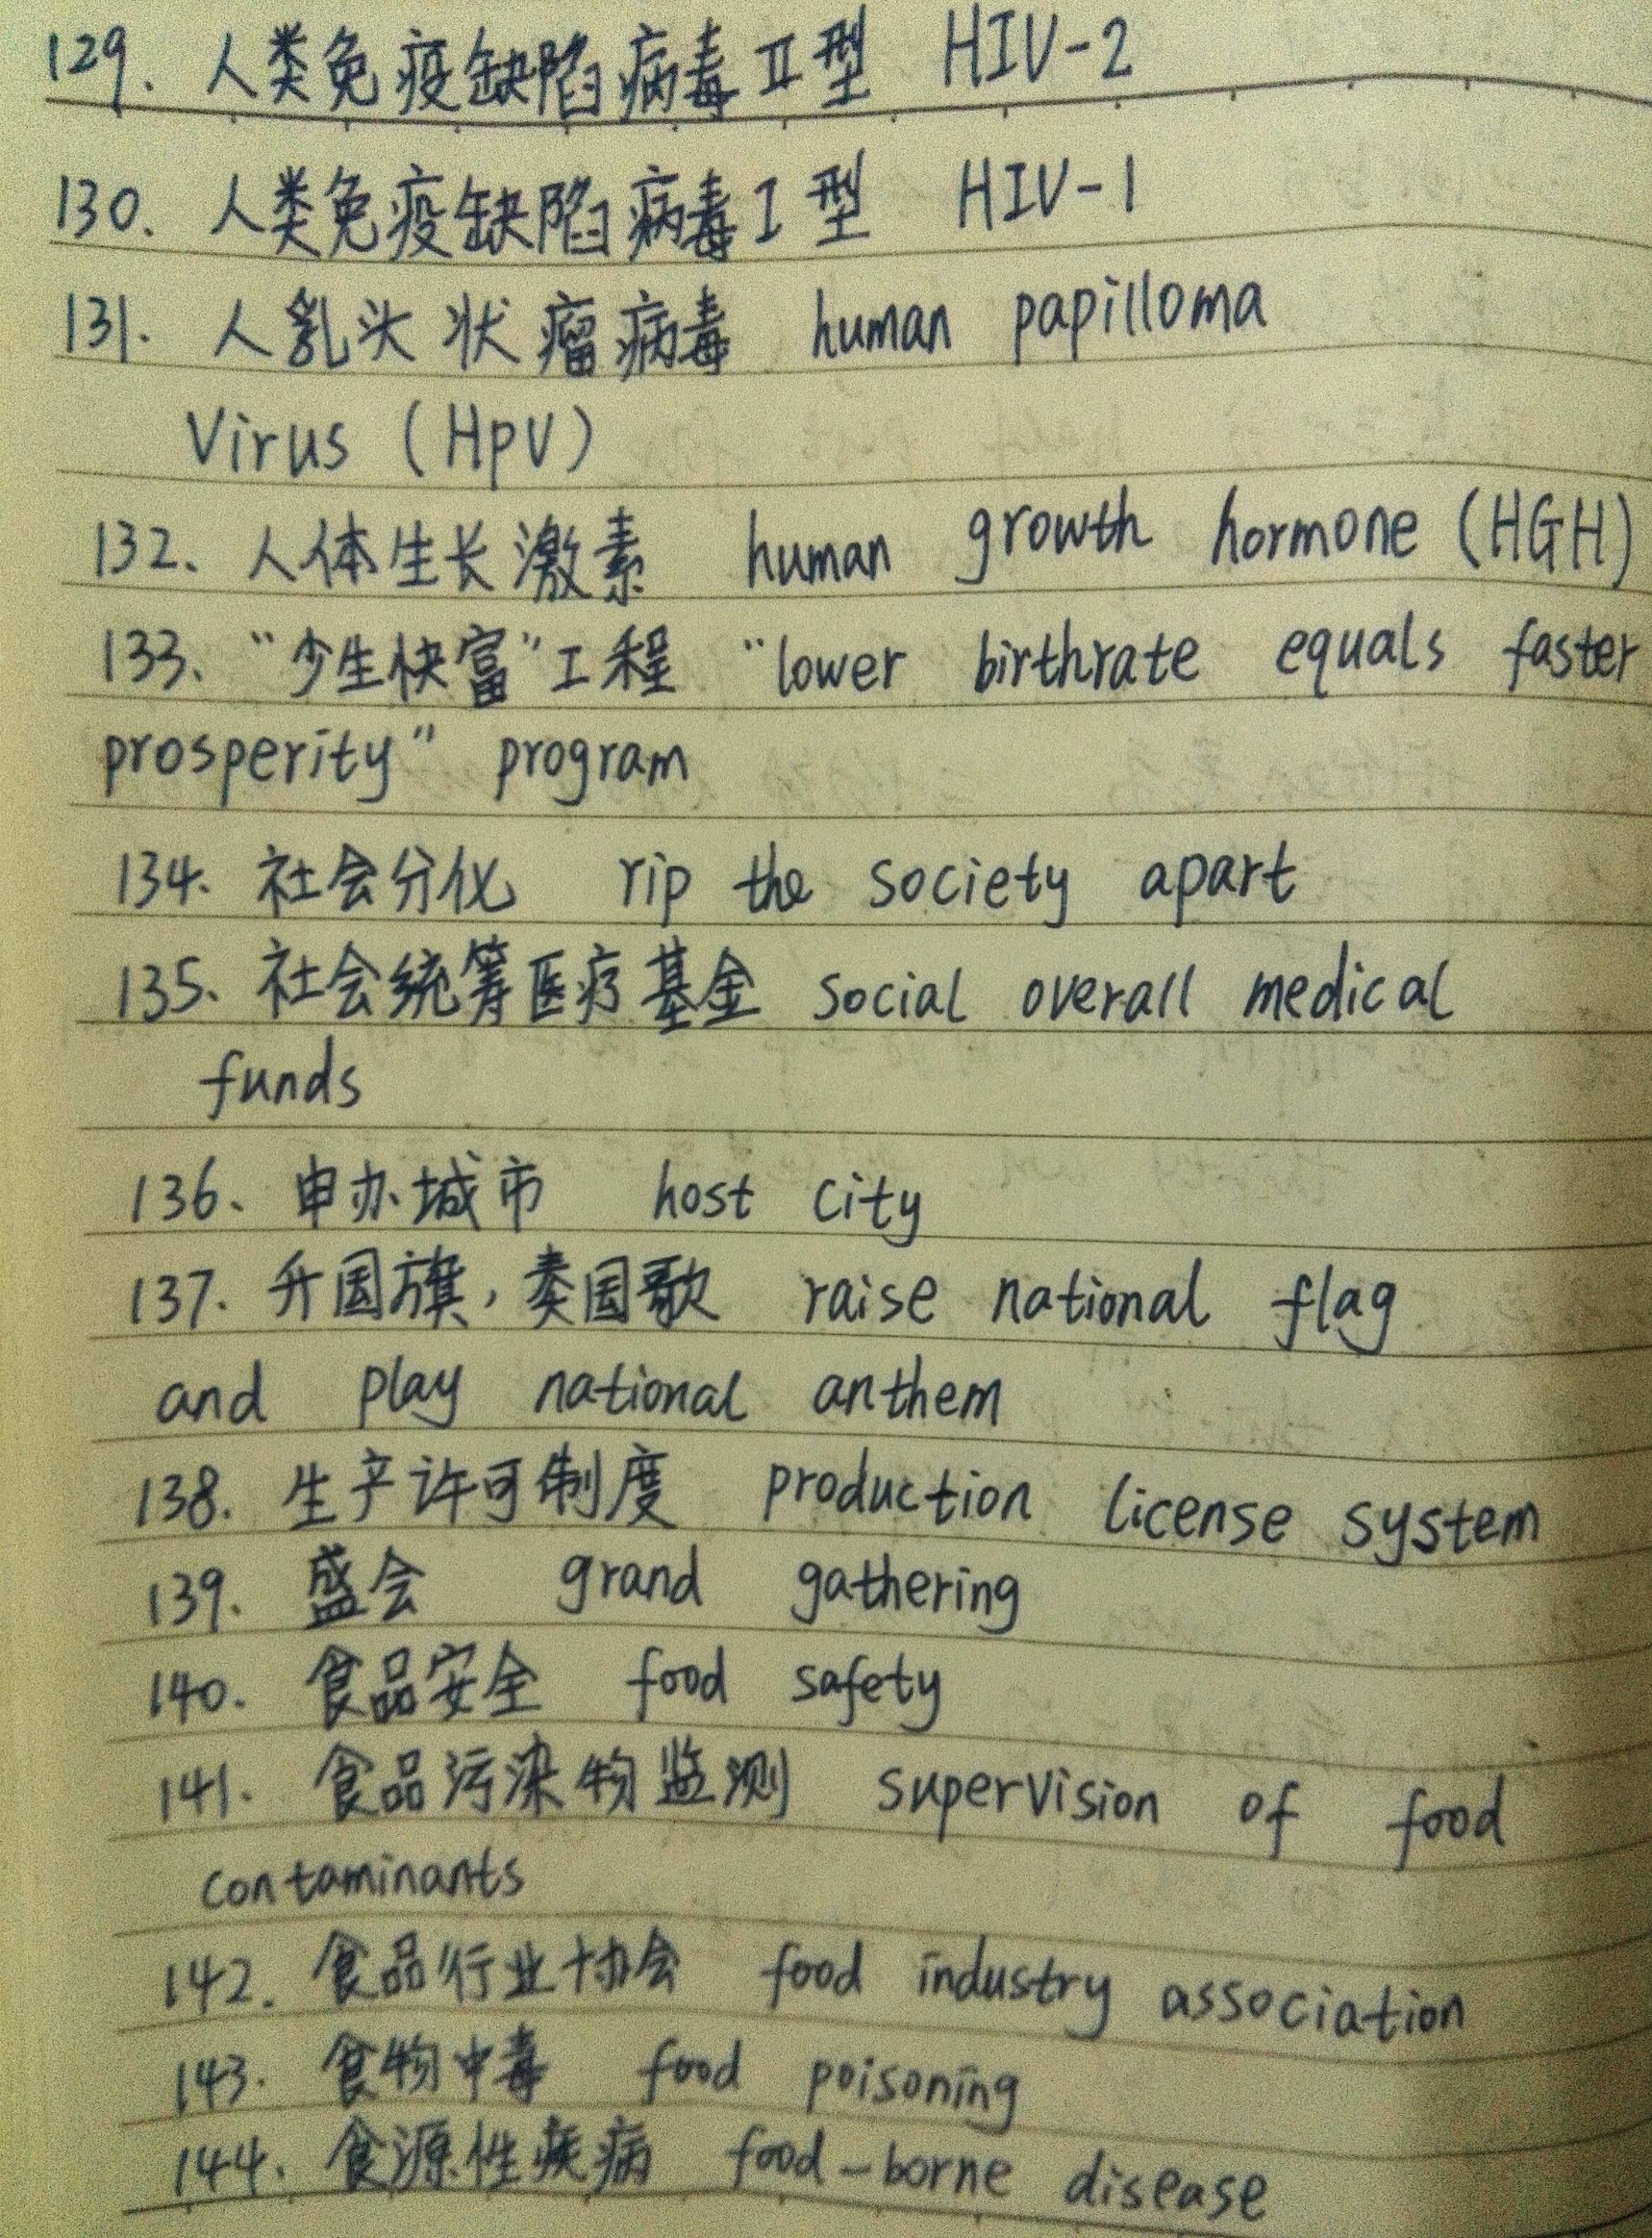 129. 人类免疫缺陷病毒II型 HIV-2
130. 人类免疫缺陷病毒I型 HIV-1
131. 人乳头状瘤病毒 human papilloma
Virus (HpV)
132、人体生长激素 human growth hormone (HGH)
133、“少生快富”工程 “lower birthrate equals faster
prosperity” program
134. 社会分化 rip the society apart
135、社会统筹医疗基金 social overall medical
funds
136、申办城市 host city
137. 升国旗，奏国歌 raise national flag
and play national anthem
138. 生产许可制度 production license system
139. 盛会 grand gathering
140. 食品安全 food safety
141. 食品污染物监测 supervision of food
contaminants
142. 食品行业协会 food industry association
143. 食物中毒 food poisoning
144. 食源性疾病 food-borne disease